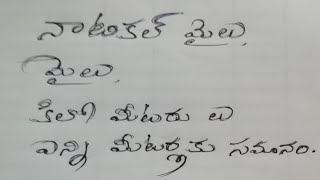 నాటికల్ మైలు,
మైలు,
కిలో మీటరు లు
ఎన్ని మీటర్లకు సమానం.